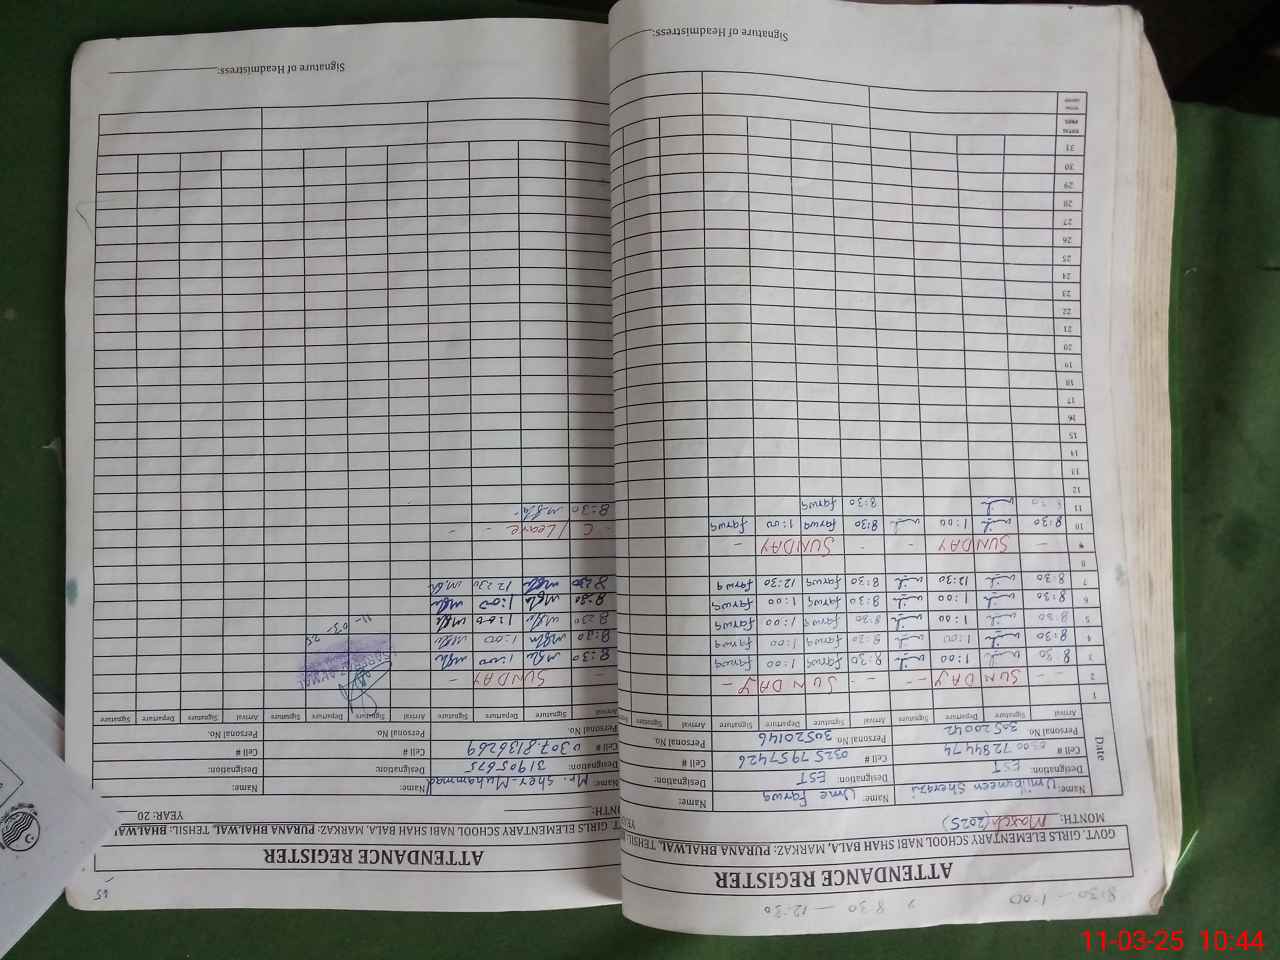 8:30 — 1:00 , 8:30 — 12:30
ATTENDANCE REGISTER
GOVT. GIRLS ELEMENTARY SCHOOL NABI SHAH BALA, MARKAZ: PURANA BHALWAL, TEHSIL:
MONTH: March (2025)
Name: Umilbaneen Sherazi Name: Ume Farwa Name:
Designation: EST Designation: EST Designation:
Cell # 0300 7284474 Cell # 0325 7957426 Cell #
Personal No. 30520042 Personal No. 30520146 Personal No.
Date Arrival Signature Departure Signature Arrival Signature Departure Signature Arrival
1
2 - - SUNDAY - - - SUNDAY -
3 8:30 1:00 8:30 Farwa 1:00 Farwa
4 8:30 1:00 8:30 Farwa 1:00 Farwa
5 8:30 1:00 8:30 Farwa 1:00 Farwa
6 8:30 1:00 8:30 Farwa 1:00 Farwa
7 8:30 12:30 8:30 Farwa 12:30 Farwa
8
9 - SUNDAY - - SUNDAY -
10 8:30 1:00 8:30 Farwa 1:00 Farwa
11 8:30 8:30 Farwa
12
13
14
15
16
17
18
19
20
21
22
23
24
25
26
27
28
29
30
31
TOTAL
Signature of Headmistress:
65
ATTENDANCE REGISTER
T. GIRLS ELEMENTARY SCHOOL NABI SHAH BALA, MARKAZ: PURANA BHALWAL, TEHSIL: BHALWAL
NTH: YEAR: 20
Name: Mr. Sher Muhammad Name:
Designation: 31905675 Designation:
Cell # 0307 8136269 Cell #
Personal No. Personal No. Personal No.
Arrival Signature Departure Signature Arrival Signature Departure Signature Arrival Signature Departure Signature
- SUNDAY -
8:30 1:00
8:30 1:00
8:30 1:00
8:30 1:00
8:30 12:30
- C/Leave - -
8:30
11-03-25
Signature of Headmistress:
11-03-25 10:44